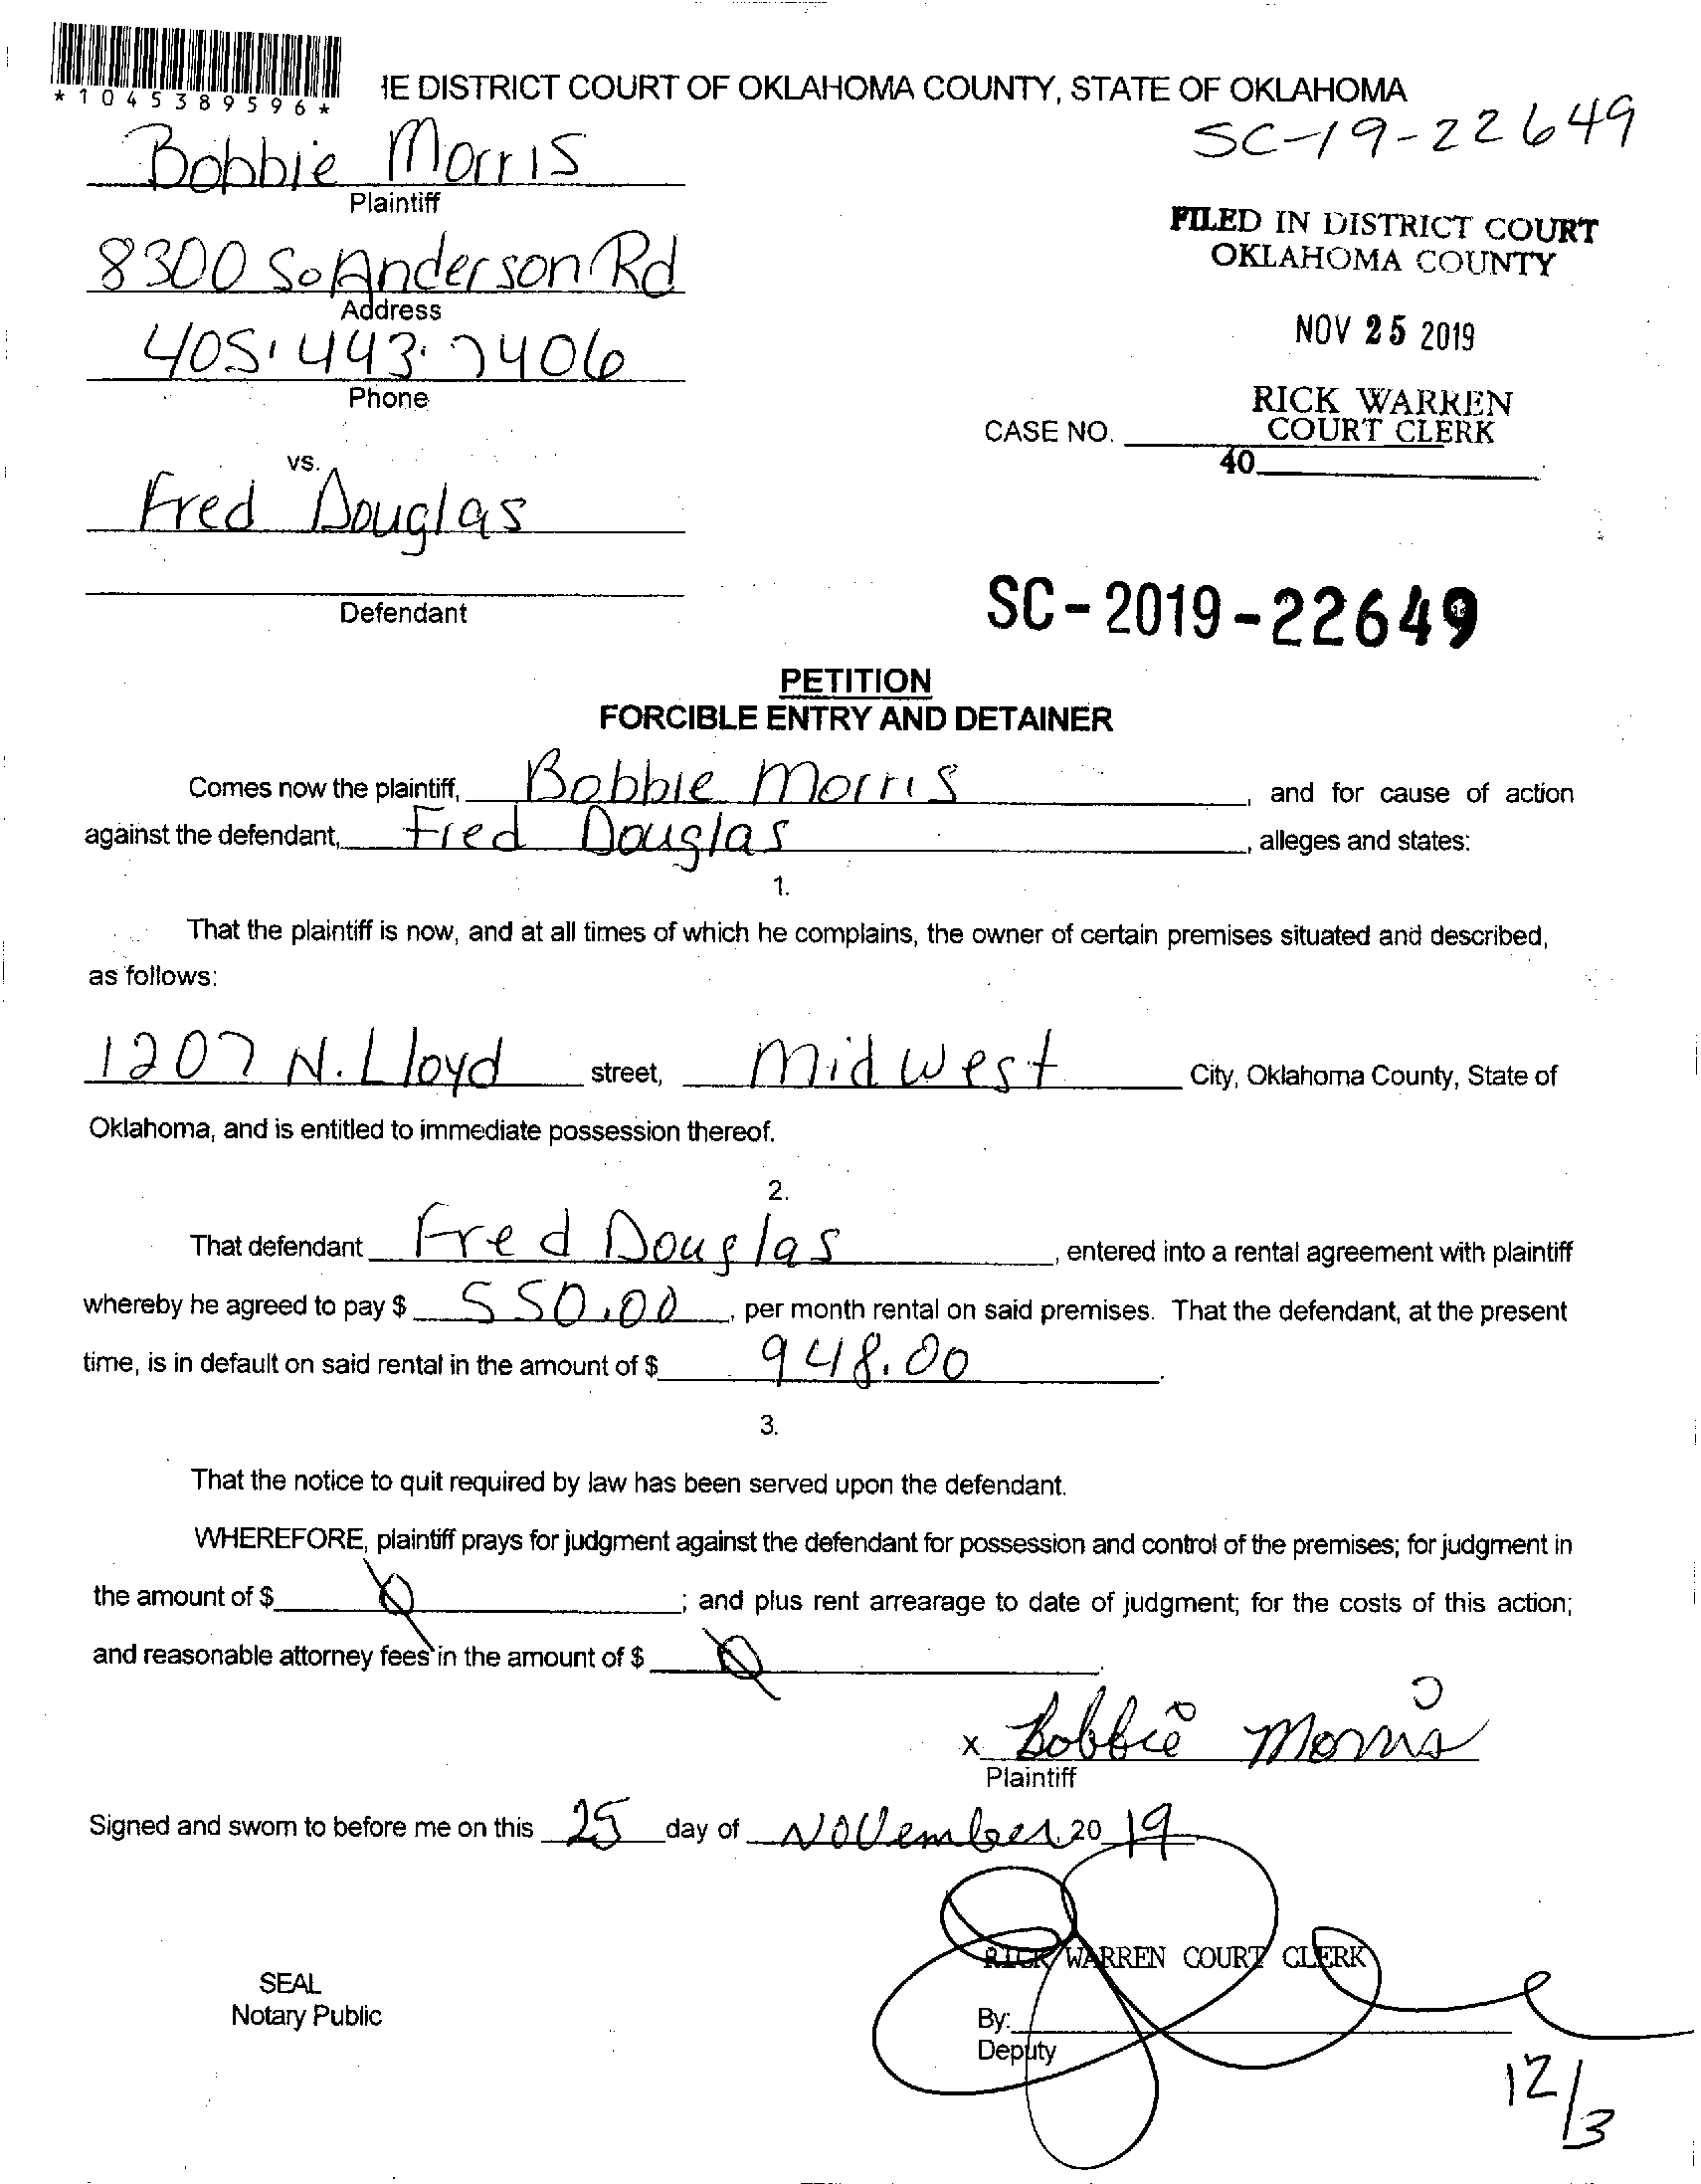 *1045389596*
IE DISTRICT COURT OF OKLAHOMA COUNTY, STATE OF OKLAHOMA
SC-19-22649
Bobbie Morris
Plaintiff
FILED IN DISTRICT COURT
OKLAHOMA COUNTY
8300 So Anderson Rd
Address
NOV 25 2019
405.443.7406
Phone
RICK WARREN
COURT CLERK
CASE NO.
40
vs.
Fred Douglas
Defendant
SC-2019-22649
PETITION
FORCIBLE ENTRY AND DETAINER
Comes now the plaintiff, Bobbie Morris, and for cause of action
against the defendant, Fred Douglas, alleges and states:
1.
That the plaintiff is now, and at all times of which he complains, the owner of certain premises situated and described,
as follows:
1207 N. Lloyd street, Midwest City, Oklahoma County, State of
Oklahoma, and is entitled to immediate possession thereof.
2.
That defendant Fred Douglas, entered into a rental agreement with plaintiff
whereby he agreed to pay $ 550.00, per month rental on said premises. That the defendant, at the present
time, is in default on said rental in the amount of $ 948.00.
3.
That the notice to quit required by law has been served upon the defendant.
WHEREFORE, plaintiff prays for judgment against the defendant for possession and control of the premises; for judgment in
the amount of $ 0; and plus rent arrearage to date of judgment; for the costs of this action;
and reasonable attorney fees in the amount of $ 0.
x Bobbie Morris
Plaintiff
Signed and sworn to before me on this 25 day of November 20 19
RICK WARREN COURT CLERK
SEAL
Notary Public
By:
Deputy
12/3